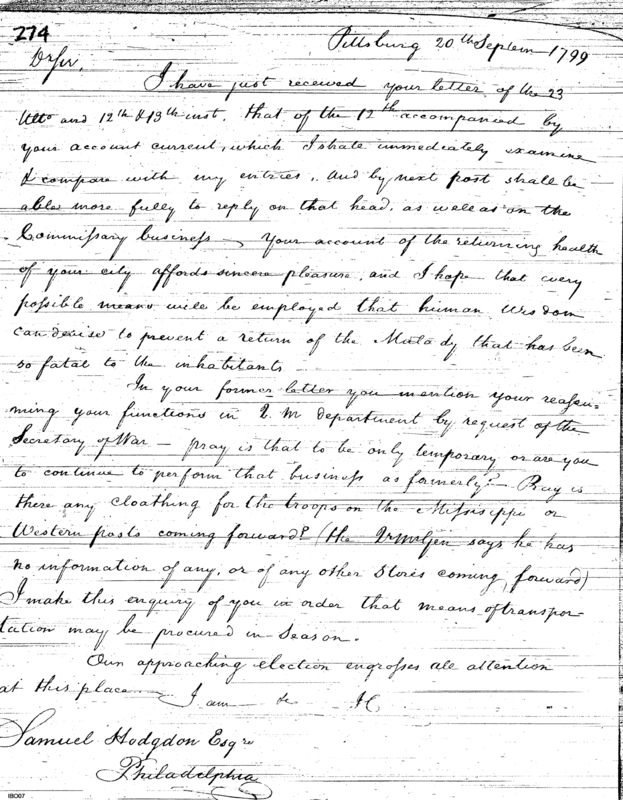 274
Pittsburg 20th Septem 1799
Dr Sir,
I have just received your letter of the 23
Ulto and 12th & 13th inst. that of the 12th accompanied by
your account current, which I shall immediately examine
& compare with my entries, and by next post shall be
able more fully to reply on that head, as well as on the
Commissary business — Your account of the returning health
of your city affords sincere pleasure, and I hope that every
possible means will be employed that human wisdom
can devise to prevent a return of the Malady that has been
so fatal to the inhabitants
In your former letter you mention your reassu=
ming your functions in Q. M department by request of the
Secretary of War — pray is that to be only temporary or are you
to continue to perform that business as formerly? — Pray is
there any cloathing for the troops on the Missisippi or
Western posts coming forward? (the Qr Mr Gen says he has
no information of any, or of any other Stores coming forward)
I make this enquiry of you in order that means of transpor-
tation may be procured in Season.
Our approaching election engrosses all attention
at this place — I am — &c
Samuel Hodgdon Esqre
Philadelphia
IBO07